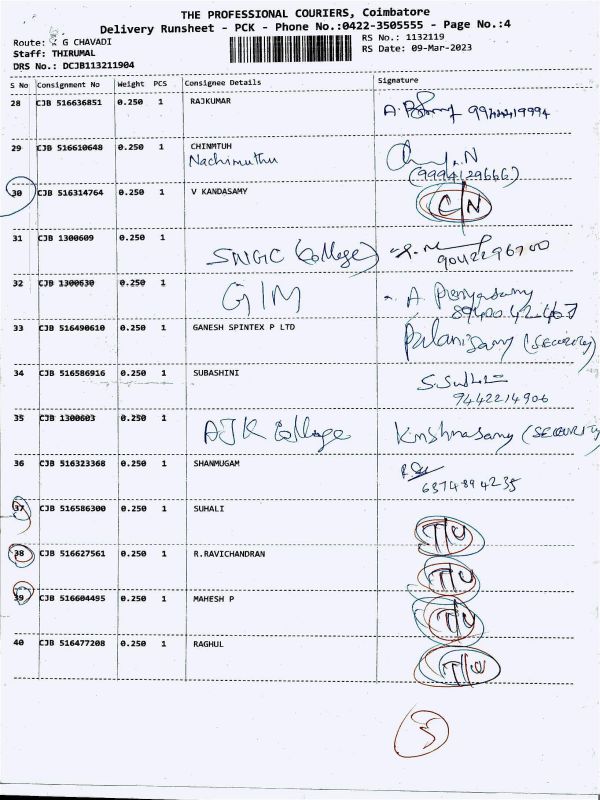 THE PROFESSIONAL COURIERS, Coimbatore
Delivery Runsheet - PCK - Phone No.:0422-3505555 - Page No.:4
Route: G CHAVADI
RS No.: 1132119
Staff: THIRUMAL
RS Date: 09-Mar-2023
DRS No.: DCJB113211904
S No Consignment No Weight PCS Consignee Details Signature
28 CJB 516636851 0.250 1 RAJKUMAR
29 CJB 516610648 0.250 1 CHINMTUH
Nachimuthu
(9994129666)
30 CJB 516314764 0.250 1 V KANDASAMY C/N
31 CJB 1300609 0.250 1
SNGC (College)
9042296700
32 CJB 1300630 0.250 1
GIM A
33 CJB 516490610 0.250 1 GANESH SPINTEX P LTD
Palanisamy (SECURITY)
34 CJB 516586916 0.250 1 SUBASHINI
9442214906
35 CJB 1300603 0.250 1
AJK College Krishnasamy (SECURITY
36 CJB 516323368 0.250 1 SHANMUGAM
6374894235
37 CJB 516586300 0.250 1 SUHALI T/U
38 CJB 516627561 0.250 1 R.RAVICHANDRAN T/U
39 CJB 516604495 0.250 1 MAHESH P T/U
40 CJB 516477208 0.250 1 RAGHUL T/U